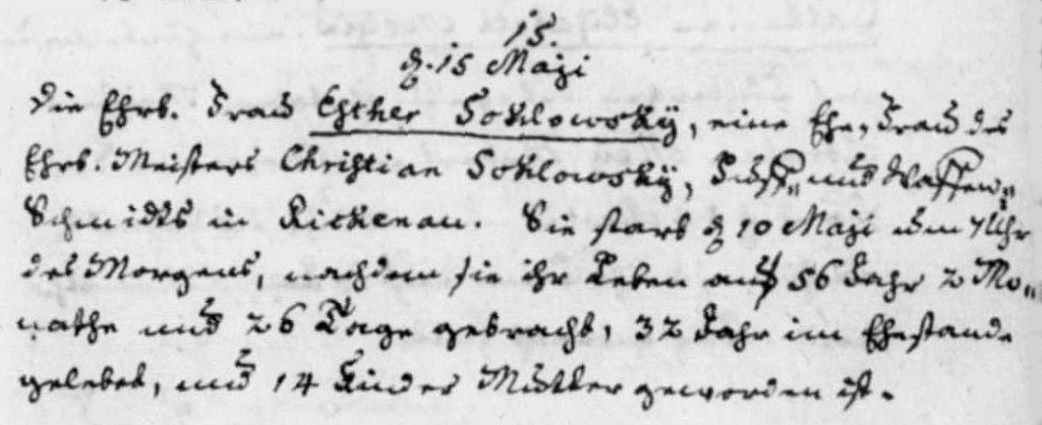 15.
d. 15 Maji
Die Ehrb. Frau Esther Soklowsky, eine Ehe-Frau des
Ehrb. Meisters Christian Soklowsky, Huff- und Waffen-
Schmidts in Rickenau. Sie starb d 10 Maji um 7 Uhr
des Morgens, nachdem sie ihr Leben auf 56 Jahr 2 Mo-
nathe und 26 Tage gebracht, 32 Jahr im Ehestande
gelebet, und 14 Kinder Mutter geworden ist.